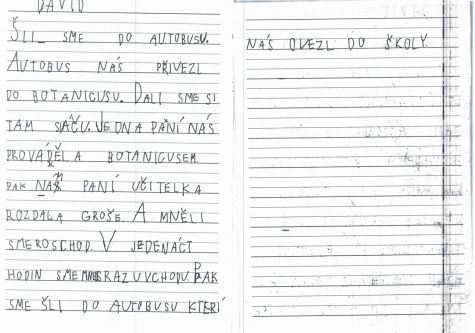 DAVID
ŠLI SME DO AUTOBUSU.
AUTOBUS NÁS PŘIVEZL
DO BOTANICUSU. DALI SME SI
TAM SVAČU. JEDNA PANÍ NÁS
PROVÁDĚLA BOTANICUSEM.
PAK NÁM PANÍ UČITELKA
ROZDALA GROŠE. A MNĚLI
SME ROSCHOD. V JEDENÁCT
HODIN SME SRAZ U VCHODU. PAK
SME ŠLI DO AUTOBUSU KTERÍ
NÁS ODVEZL DO ŠKOLY.